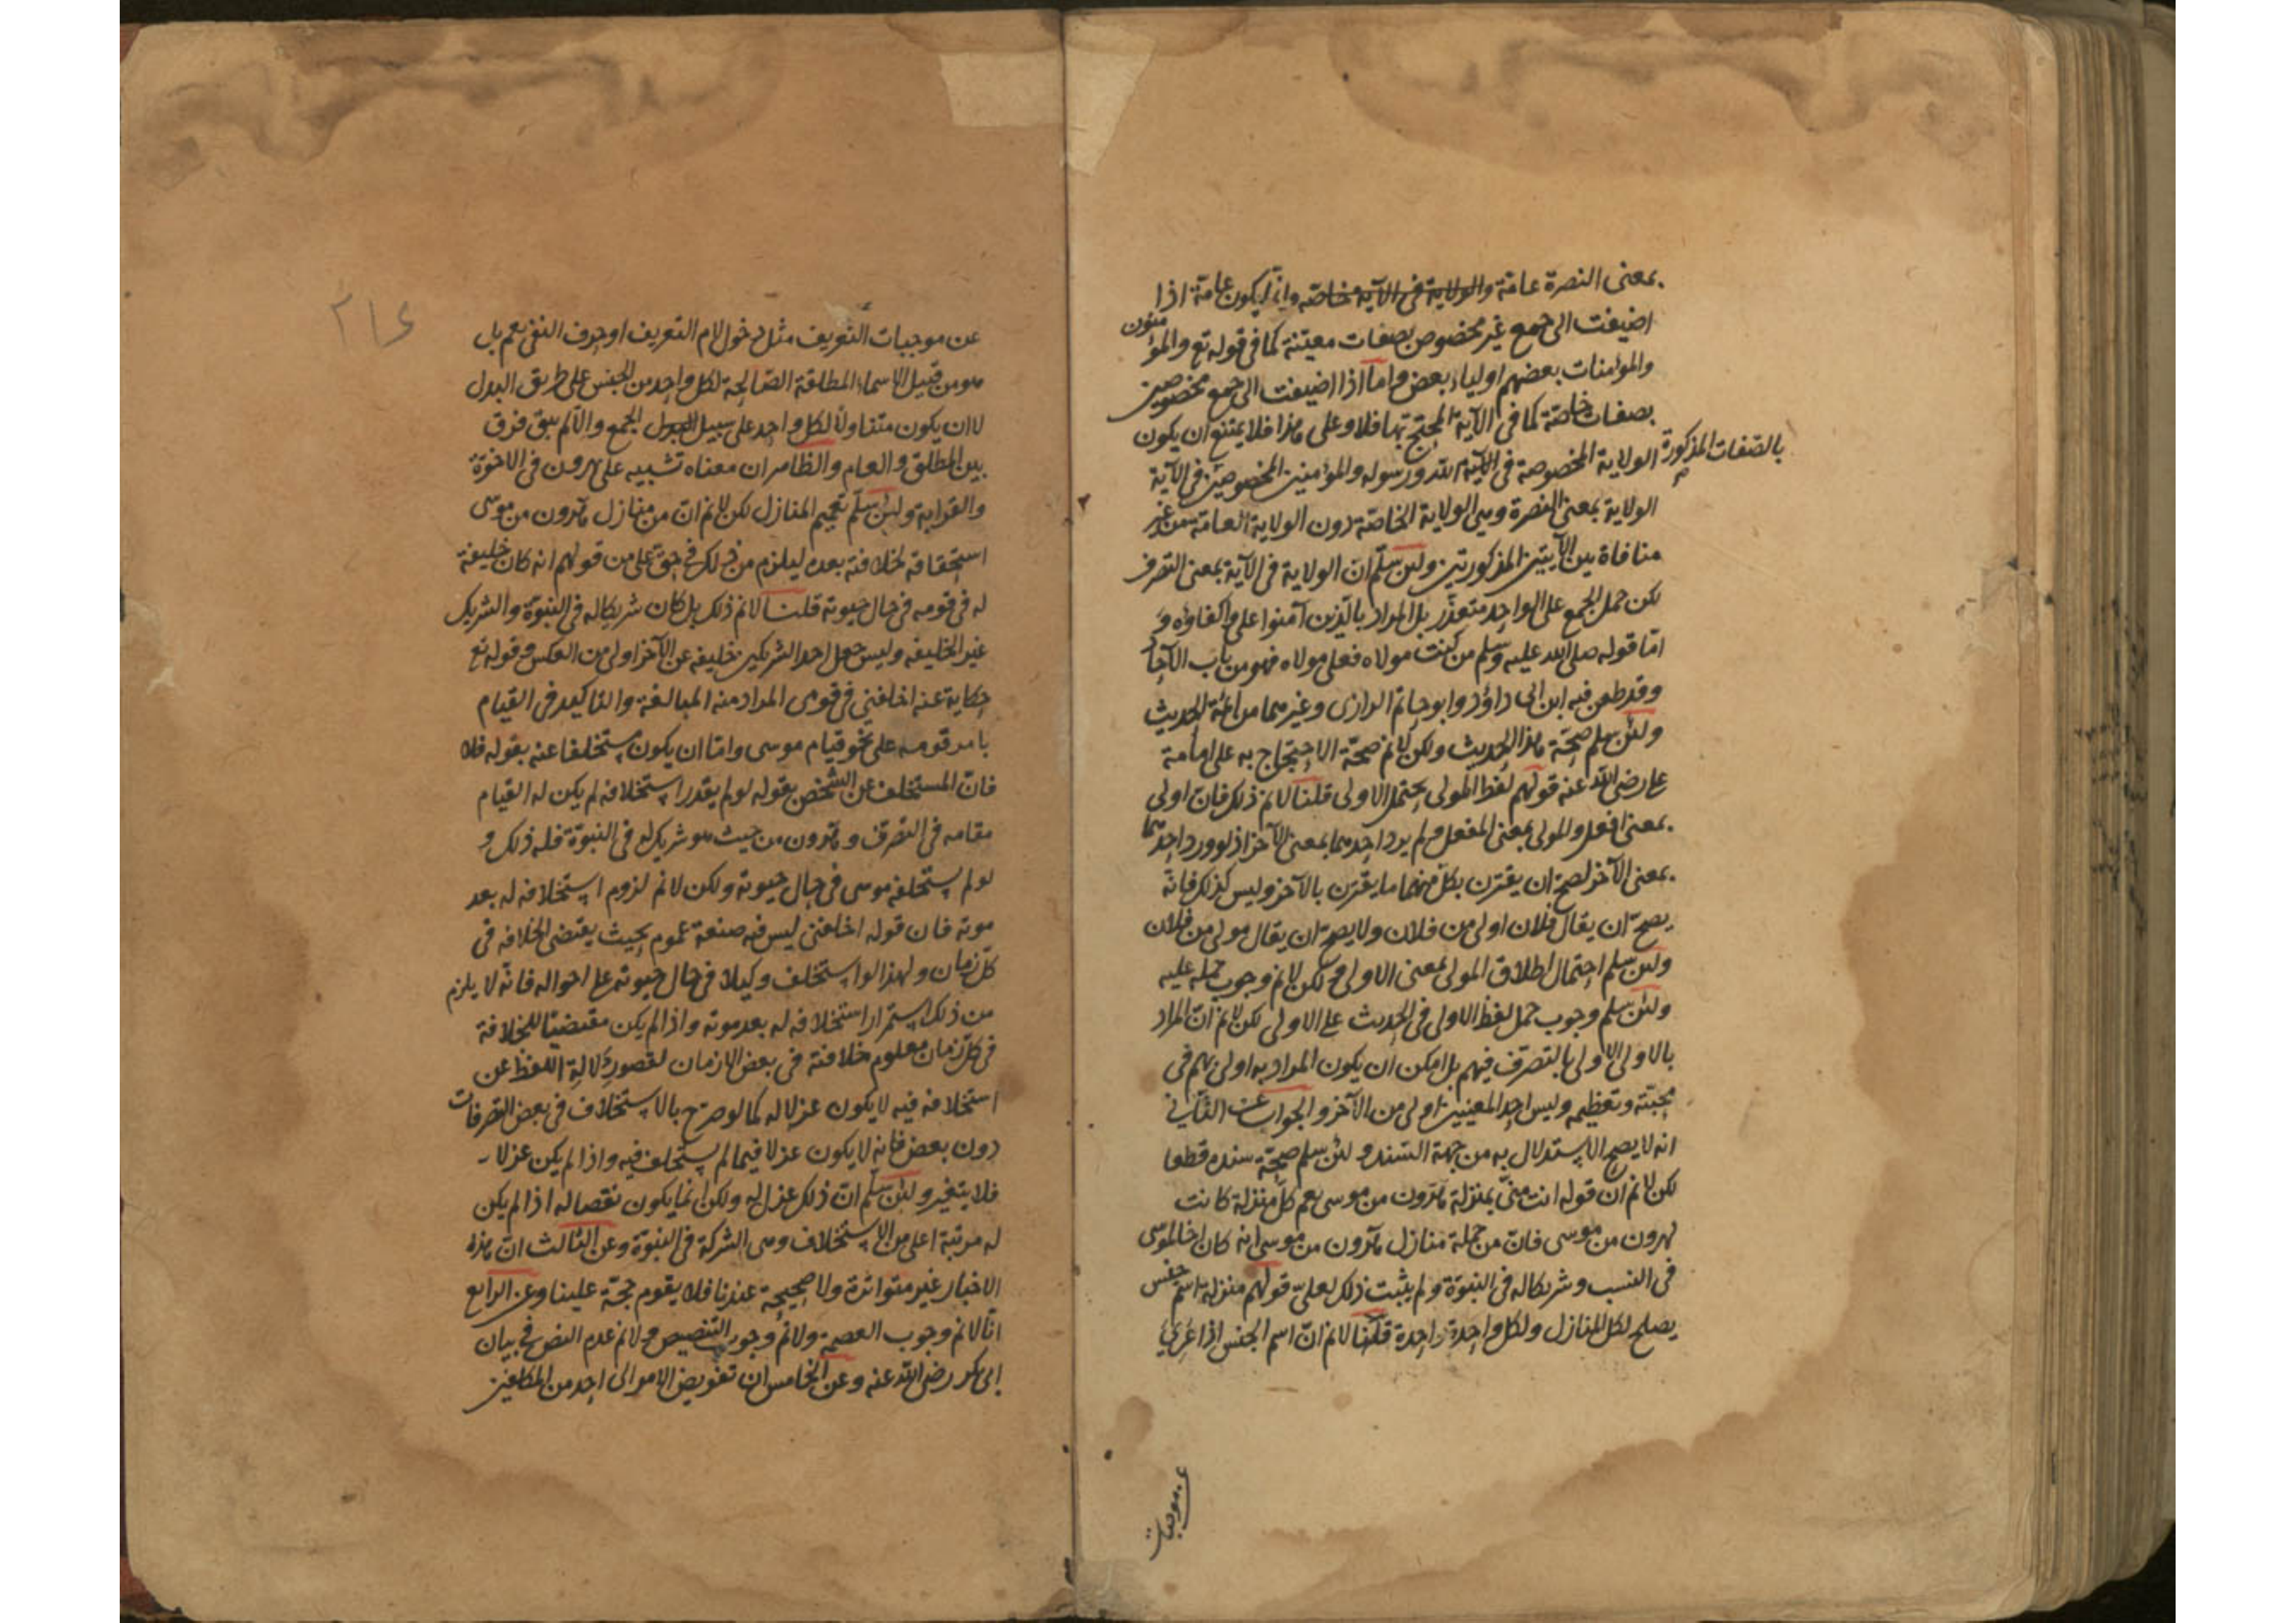 بمعنى النصرة عامة والولاية فى الآية خاصة وانما يكون عامة اذا
اضيفت الى جمع غير مخصوص بصفات معينة كما فى قوله تع والمؤمنون
والمؤمنات بعضهم اولياء بعض واما اذا اضيفت الى جمع مخصوصين
بصفات خاصة كما فى الآية المحتج بها فلا وعلى هذا فلا يمتنع ان يكون
بالصفات المذكورة
الولاية المخصوصة فى الآية لله ورسوله والمؤمنين المخصوصين فى الآية
الولاية بمعنى النصرة وهى الولاية الخاصة دون الولاية العامة من غير
منافاة بين الآيتين المذكورتين ولئن سلم ان الولاية فى الآية بمعنى التصرف
لكن حمل الجمع على الواحد متعذر بل المراد بالذين آمنوا على واكفاؤه و
اما قوله صلى الله عليه وسلم من كنت مولاه فعلى مولاه فهو من باب الآحاد
وقد طعن فيه ابن ابى داؤد وابو حاتم الرازى وغيرهما من ائمة الحديث
ولئن سلم صحة هذا الحديث ولكن لانم صحة الاحتجاج به على امامة
على رضى الله عنه قولهم لفظ المولى يحتمل الاولى قلنا لانم ذلك فان اولى
بمعنى افعل والمولى بمعنى المفعل ولم يرد احدهما بمعنى الآخر اذ لو ورد احدهما
بمعنى الآخر لصح ان يقترن بكل منهما ما يقترن بالآخر وليس كذلك فانه
يصح ان يقال فلان اولى من فلان ولا يصح ان يقال مولى من فلان
ولئن سلم احتمال اطلاق المولى بمعنى الاولى لكن لانم وجوب حمله عليه
ولئن سلم وجوب حمل لفظ الاولى فى الحديث على الاولى لكن لانم ان المراد
بالاولى الاولى بالتصرف فيهم بل امكن ان يكون المراد به اولى بهم فى
محبته وتعظيمه وليس احد المعنيين اولى من الآخر والجواب عن الثانى
انه لا يصح الاستدلال به من جهة السند و لئن سلم صحة سنده قطعا
لكن لانم ان قوله انت منى بمنزلة هرون من موسى يعم كل منزلة كانت
لهرون من موسى فان من جملة منازل هرون من موسى انه كان اخا لموسى
فى النسب وشريكا له فى النبوة ولم يثبت ذلك لعلى قولهم منزلة اسم جنس
يصلح لكل المنازل ولكل واحدة واحدة قلنا لانم ان اسم الجنس اذا عرى
عن موجبات
عن موجبات التعريف مثل دخول لام التعريف او حرف النفى يعم بل
هو من قبيل الاسماء المطلقة الصالحة لكل واحد من الجنس على طريق البدل
لا ان يكون متناولا لكل واحد على سبيل الجمع والا لم يبق فرق
بين المطلق والعام والظاهر ان معناه تشبيه على بهرون فى الاخوة
والقرابة ولئن سلم تعميم المنازل لكن لانم ان من منازل هرون من موسى
استحقاقه لخلافته بعده ليلزم من ذلك فى حق على من قولهم انه كان خليفة
له فى قومه فى حال حيوته قلنا لانم ذلك بل كان شريكا له فى النبوة والشريك
غير الخليفه وليس جعل احد الشريكين خليفه عن الآخر اولى من العكس وقوله تع
حكاية عنه اخلفنى فى قومى المراد منه المبالغة والتاكيد فى القيام
بامر قومه على نحو قيام موسى واما ان يكون مستخلفا عنه بقوله فلا
فان المستخلف عن الشخص بقوله لو لم يقدر استخلافه لم يكن له القيام
مقامه فى التصرف وهرون من حيث هو شريك له فى النبوة فله ذلك و
لو لم يستخلفه موسى فى حال حيوته ولكن لانم لزوم استخلافه له بعد
موته فان قوله اخلفنى ليس فيه صنعة عموم بحيث يقتضى الخلافه فى
كل زمان ولهذا لو استخلف وكيلا فى حال حيوته على احواله فانه لا يلزم
من ذلك استمرار استخلافه له بعد موته واذا لم يكن مقتضيا للخلافة
فى كل زمان معلوم خلافته فى بعض الازمان لقصور دلالة اللفظ عن
استخلافه فيه لا يكون عزلا له كما لو صرح بالاستخلاف فى بعض التصرفات
دون بعض فانه لا يكون عزلا فيما لم يستخلف فيه واذا لم يكن عزلا
فلا يتغير ولئن سلم ان ذلك عزل له ولكن انما يكون نقصا له اذا لم يكن
له مرتبة اعلى من الاستخلاف وهى الشركة فى النبوة وعن الثالث ان هذه
الاخبار غير متواترة ولا صحيحة عندنا فلا يقوم حجة علينا وعن الرابع
انا لانم وجوب العصمة ولانم وجوب التنصيص ولانم عدم النص فى بيان
ابى بكر رضى الله عنه وعن الخامس ان تفويض الامر الى احد من المكلفين